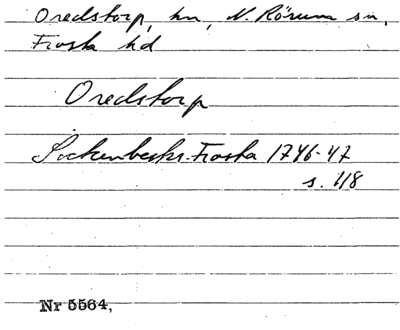 Oredstorp, hn, N. Rörum sn,
Frosta hd
Oredstorp
Sockenbeskr. Frosta 1746-47
s. 118
Nr 5564,